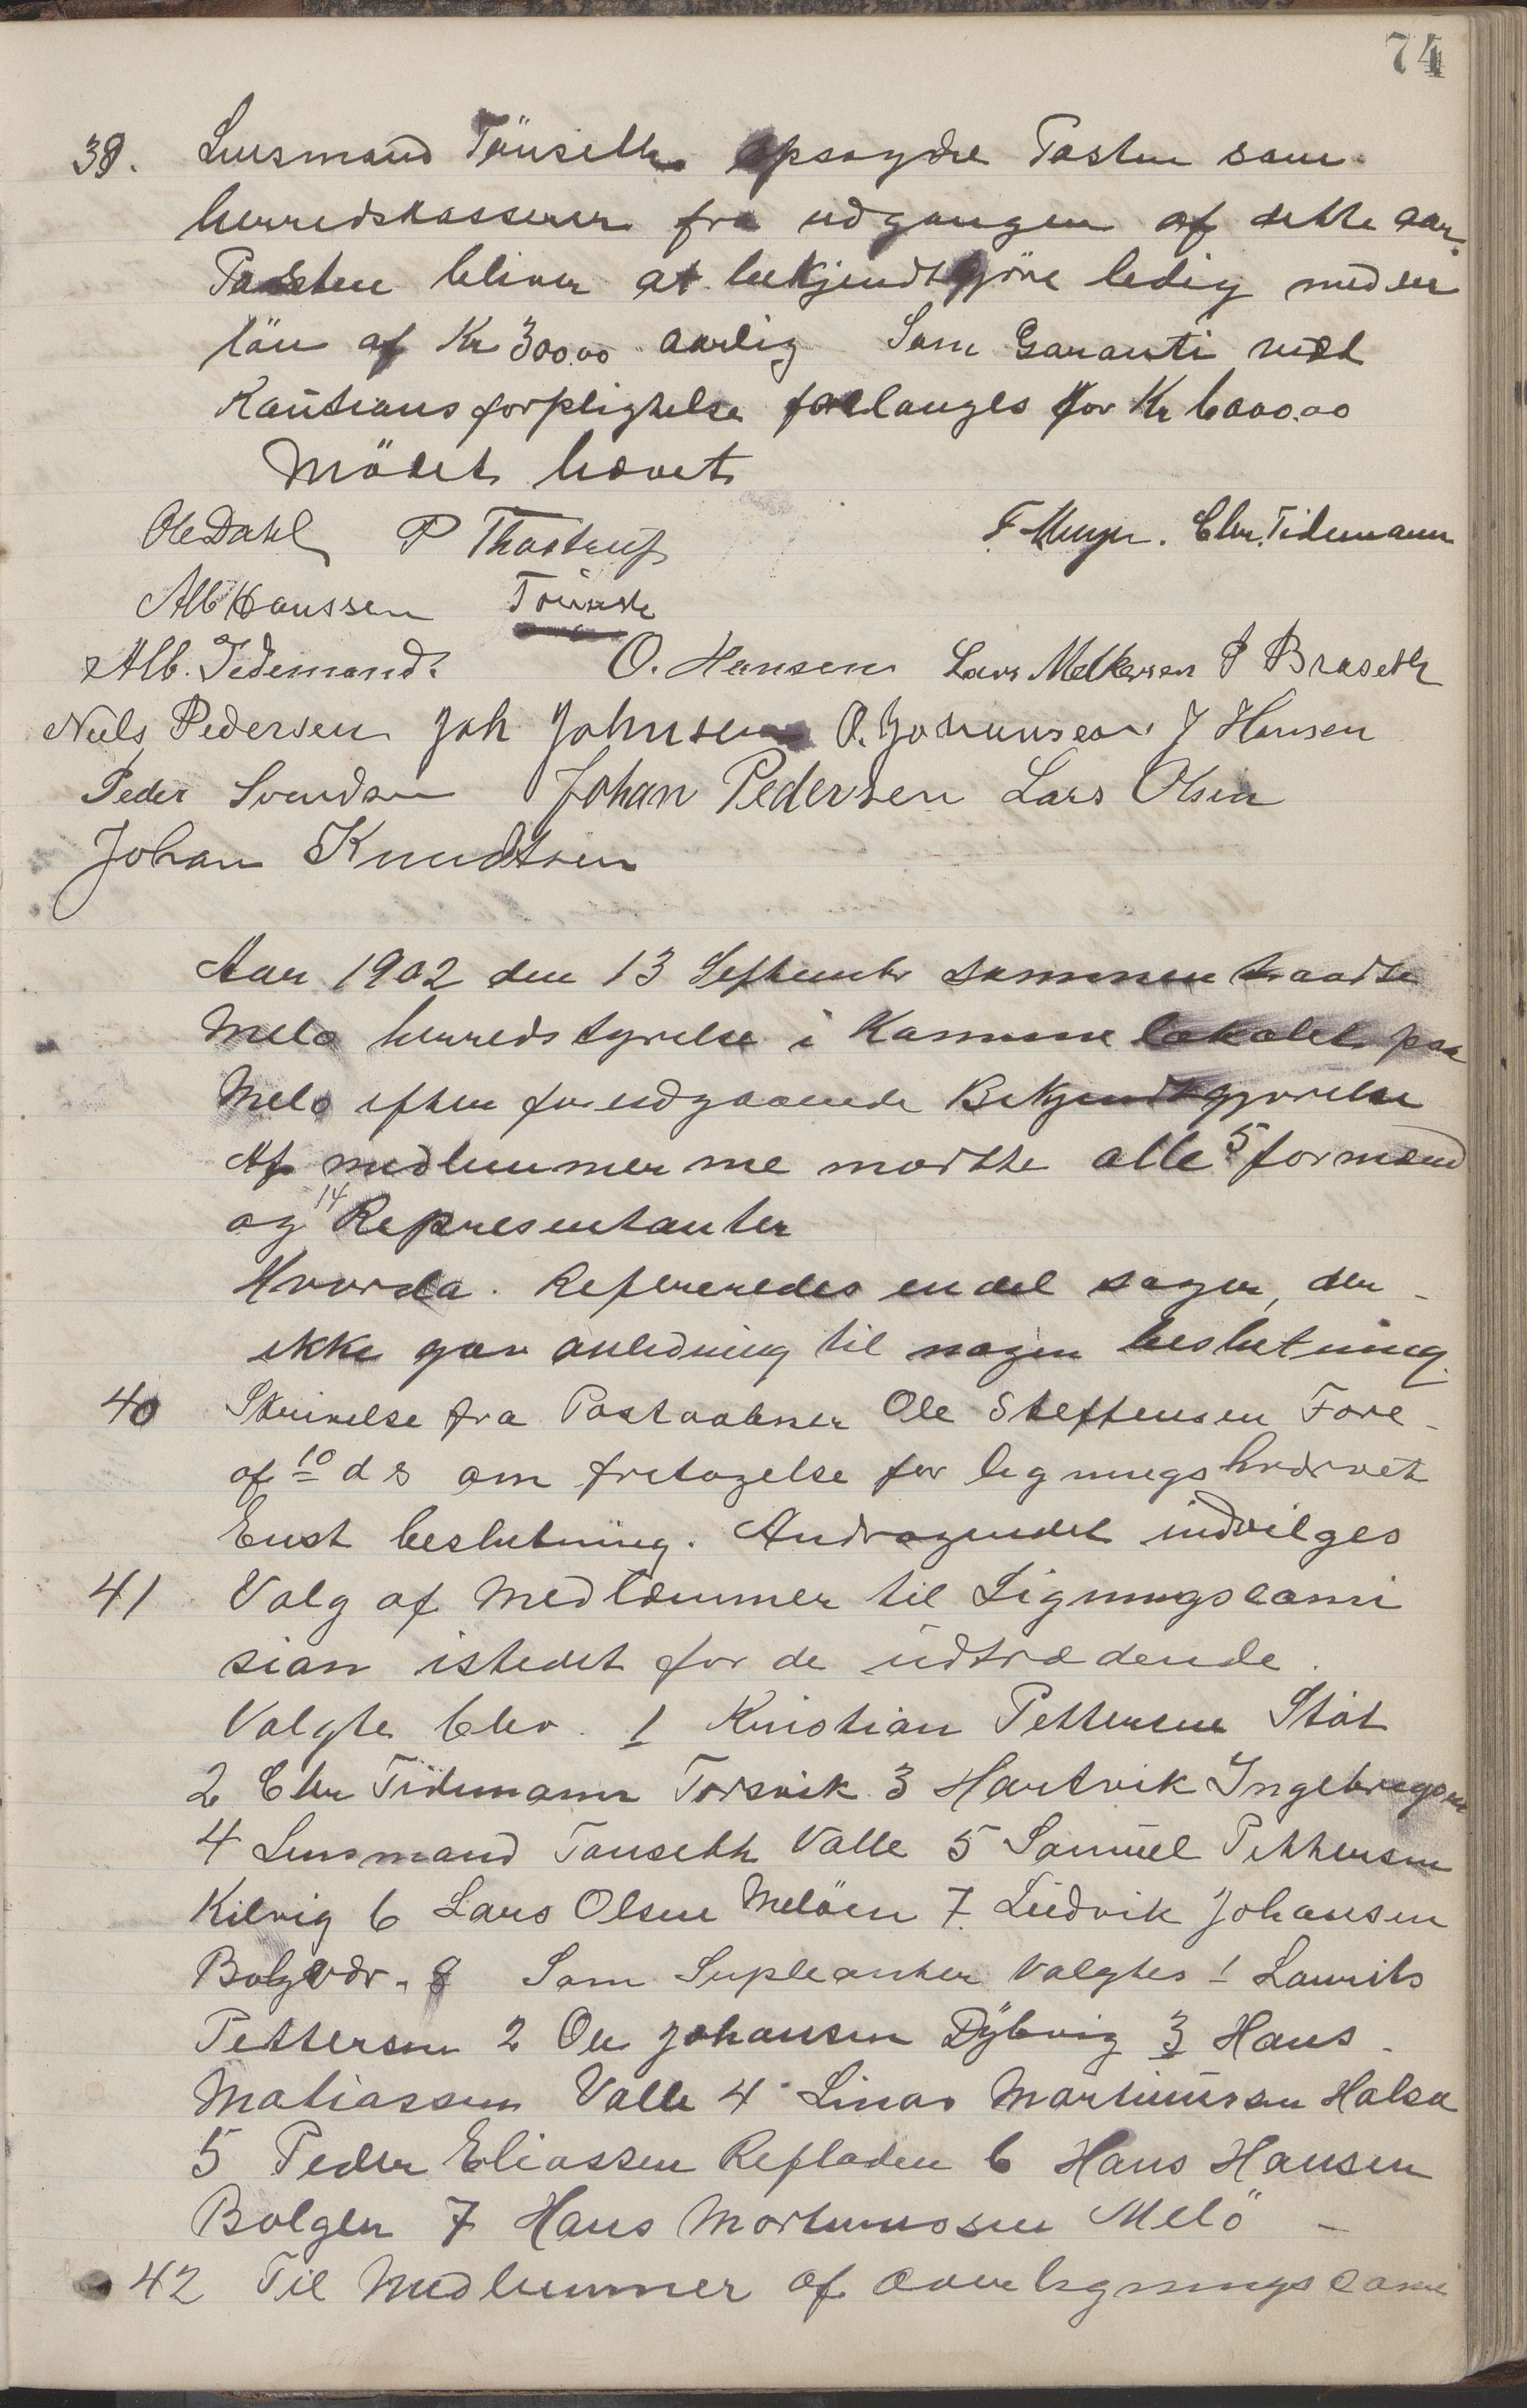 74
39. Lensmand Tönseth opsagde Posten som
herredskasserer fra udgangen af dette aar.
Posten bliver at bekjendtgjöre ledig med en
lön af Kr 300.00 aarlig Som Garanti ved
Kautionsforpligtelse forlanges for Kr 6000.00
Mödet hævet
Ole Dahl P Thostrup F. Meyer. Chr. Tidemann
Alb Hanssen Tönseth
Alb. Tidemand. O. Hansen Lars Melkersen P Braseth
Niels Pedersen Joh Johnsen O. Johannsen J Hansen
Peder Svendsen Johan Pedersen Lars Olsen
Johan Knudtsen
Aar 1902 den 13 September sammentraadte
Melø herredstyrelse i Kommunelokalet paa
Melø efter forudgaaende Bekjendtgjørelse
Af medlemmerne mødte alle 5 formænd
og 14 Representanter
Hvorda. Refereredes endel sager, der
ikke gav anledning til nogen beslutning.
40 Skrivelse fra Postaabner Ole Steffensen Fore
af 10 ds om fritagelse for ligningshvervet
Enst beslutning. Andragendet indvilges
41 Valg af Medlemmer til Ligningscomi
sion istedet for de udtrædende.
Valgte blev. 1 Kristian Pettersen Støt
2 Chr Tidemann Torsvik 3 Hartvik Ingebrigtsen
4 Lensmand Tonseth Valle 5 Samuel Pettersen
Kilvig 6 Lars Olsen Melöen 7. Ludvik Johansen
Bolgvær. 8 Som Supleanter valgtes 1 Laurits
Pettersen 2 Ole Johansen Dybvig 3 Hans
Matiassen Valle 4 Linas Martinussen Halsa
5 Peder Eliassen Refladen 6 Hans Hansen
Bolgen 7 Hans Mortinussen Melö –
42 Til Medlemmer af Overligningscomi